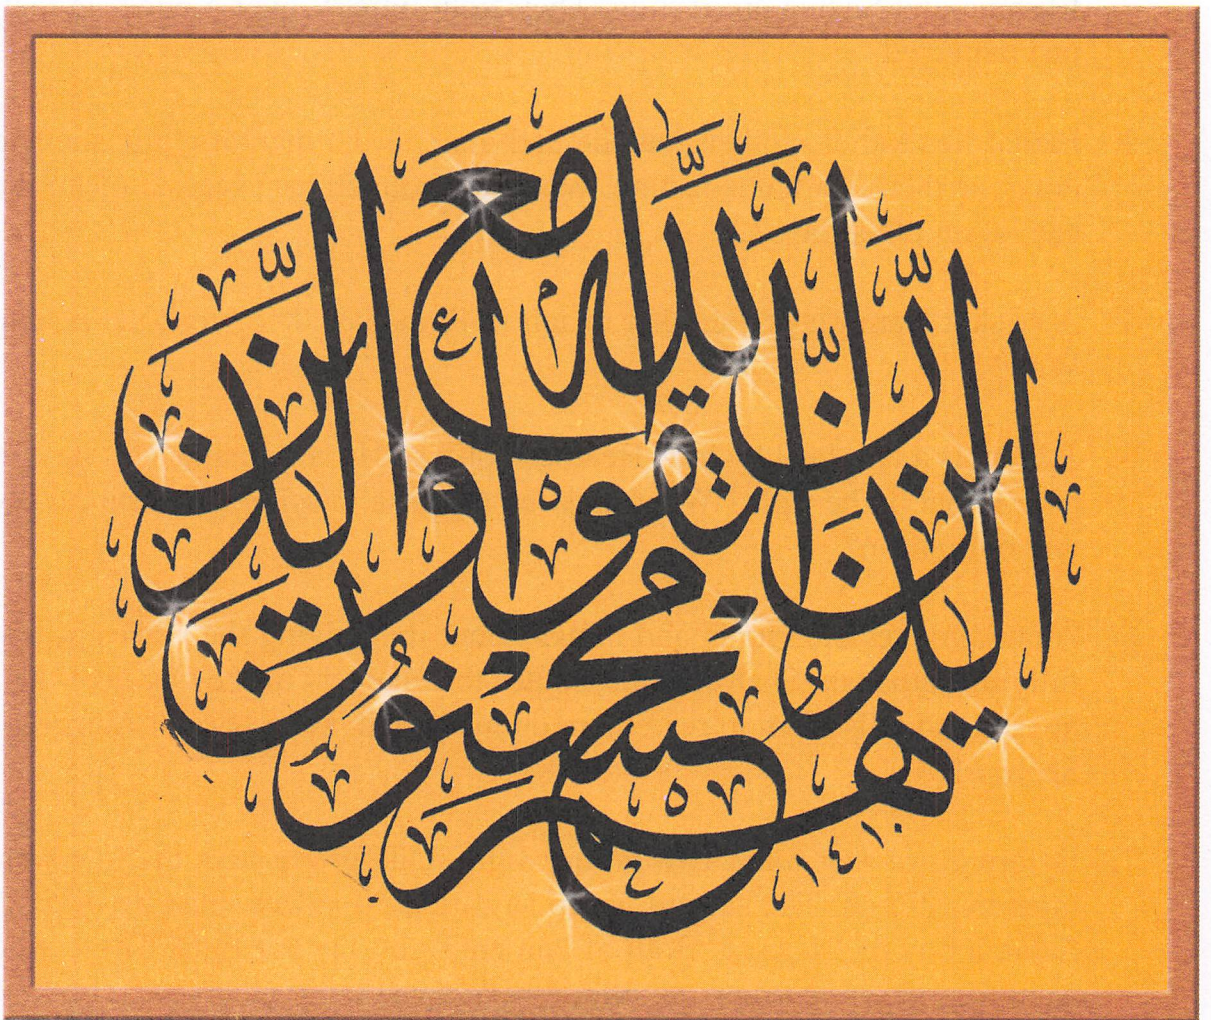 إِنَّ اللَّهَ مَعَ الَّذِينَ اتَّقَوْا وَالَّذِينَ هُمْ مُحْسِنُونَ
١٤١٠